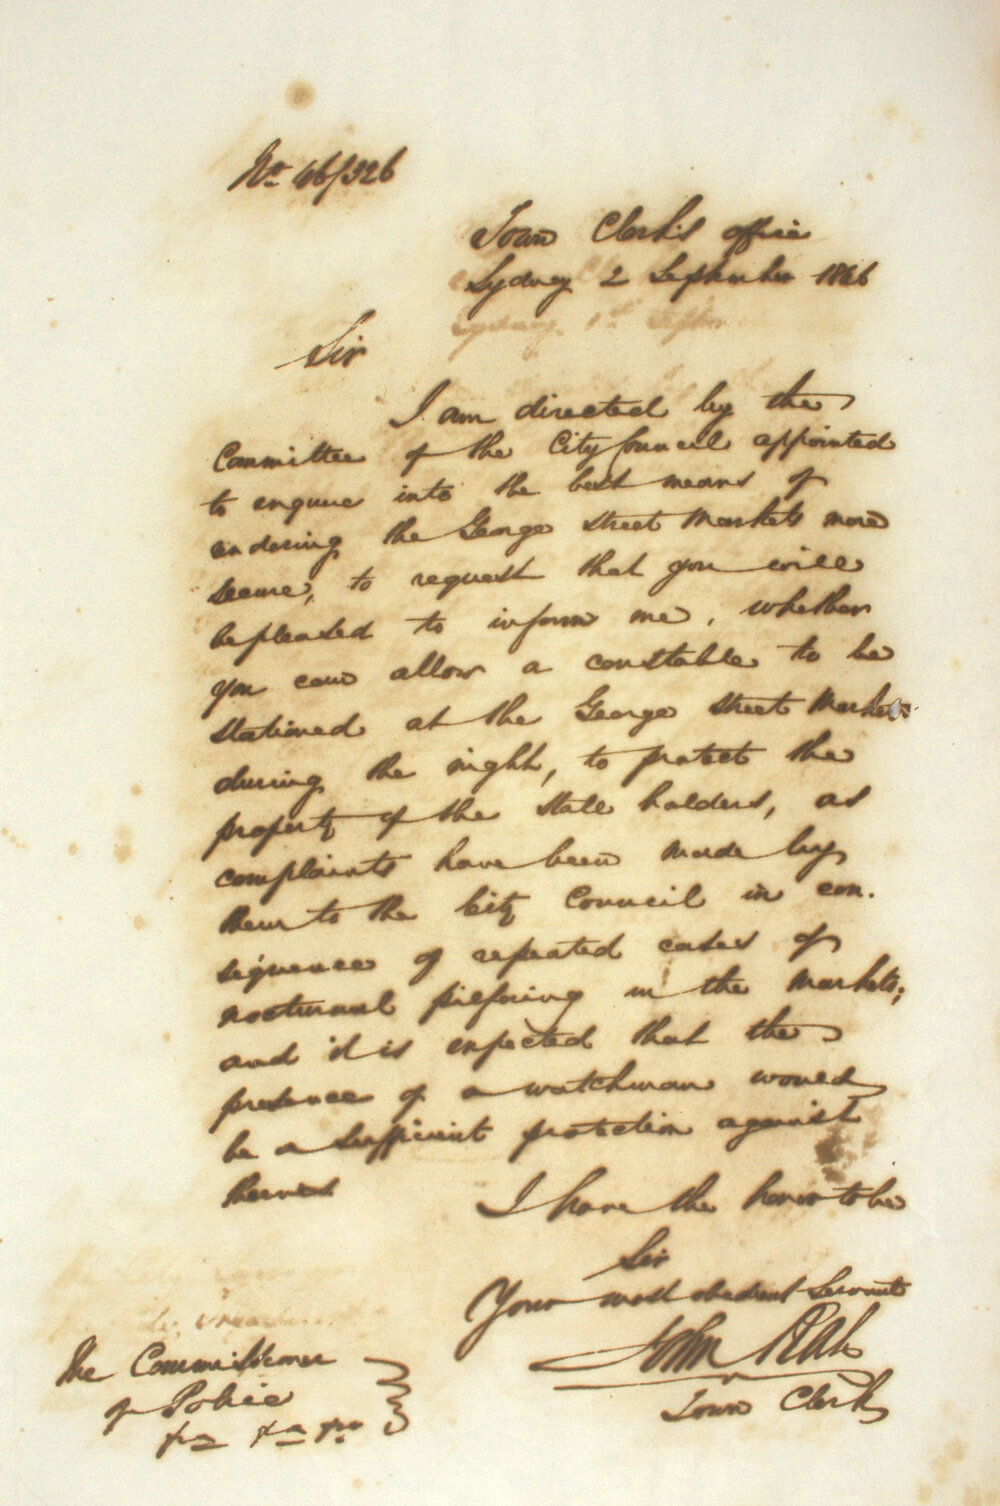 No 46/326
Town Clerk's office
Sydney 2 September 1846
Sir
I am directed by the
Committee of the City Council appointed
to enquire into the best means of
endering the George Street Markets more
secure, to request that you will
be pleased to inform me, whether
you can allow a constable to be
stationed at the George Street Markets
during the night, to protect the
property of the stall holders, as
complaints have been made by
them to the City Council in con.
sequence of repeated cases of
nocturnal pilfering in the Markets;
and it is expected that the
presence of a watchman would
be a sufficient protection against
thieves
I have the honor to be
Sir
Your most obedient Servant
John Rae
Town Clerk
The Commissioner
of Police